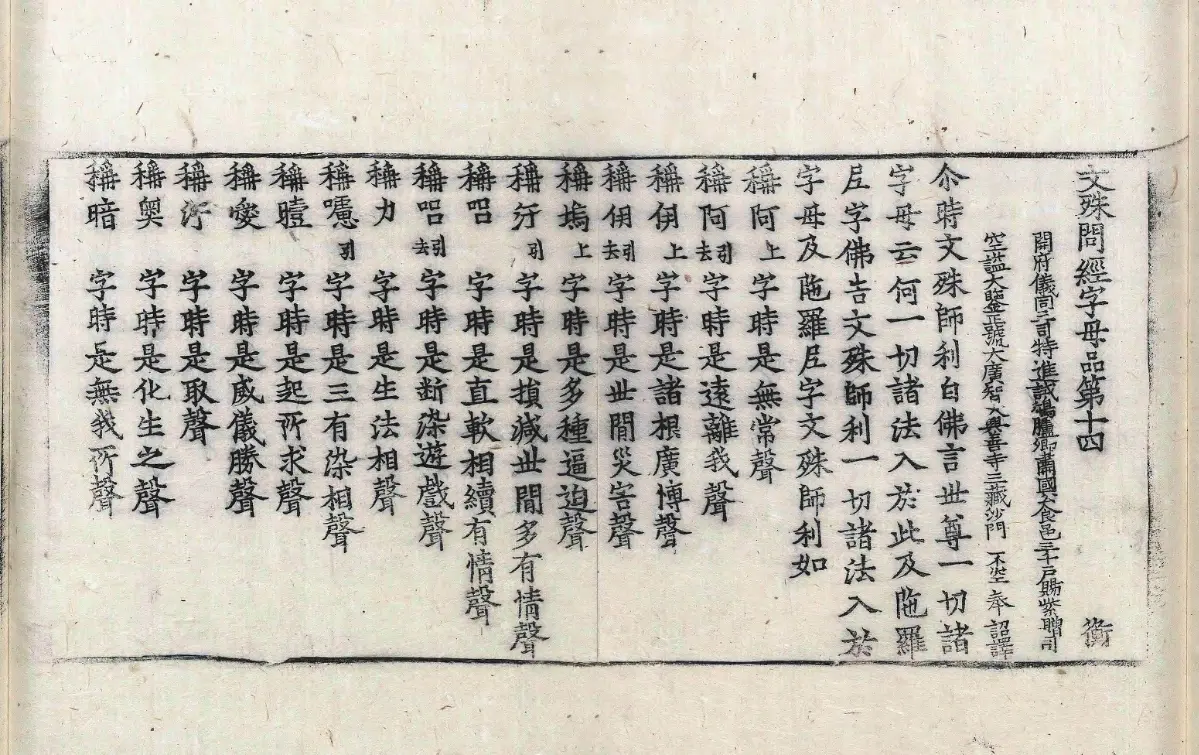 文殊問經字母品第十四 衡
開府儀同三司特進試鴻臚卿肅國公食邑三千戶賜紫贈司
空謚大鑒正號大廣智大興善寺三藏沙門 不空 奉 詔譯
尒時文殊師利白佛言世尊一切諸
字母云何一切諸法入於此及陁羅
尼字佛告文殊師利一切諸法入於
字母及陁羅尼字文殊師利如
稱阿上字時是無常聲
稱阿引去字時是遠離我聲
稱伊上字時是諸根廣博聲
稱伊引去字時是世間災害聲
稱塢上字時是多種逼迫聲
稱汙引字時是損減世間多有情聲
稱呂字時是直軟相續有情聲
稱呂引去字時是断染遊戲聲
稱力字時是生法相聲
稱嚧引字時是三有染相聲
稱曀字時是起所求聲
稱愛字時是威儀勝聲
稱汙字時是取聲
稱奧字時是化生之聲
稱暗字時是無我所聲